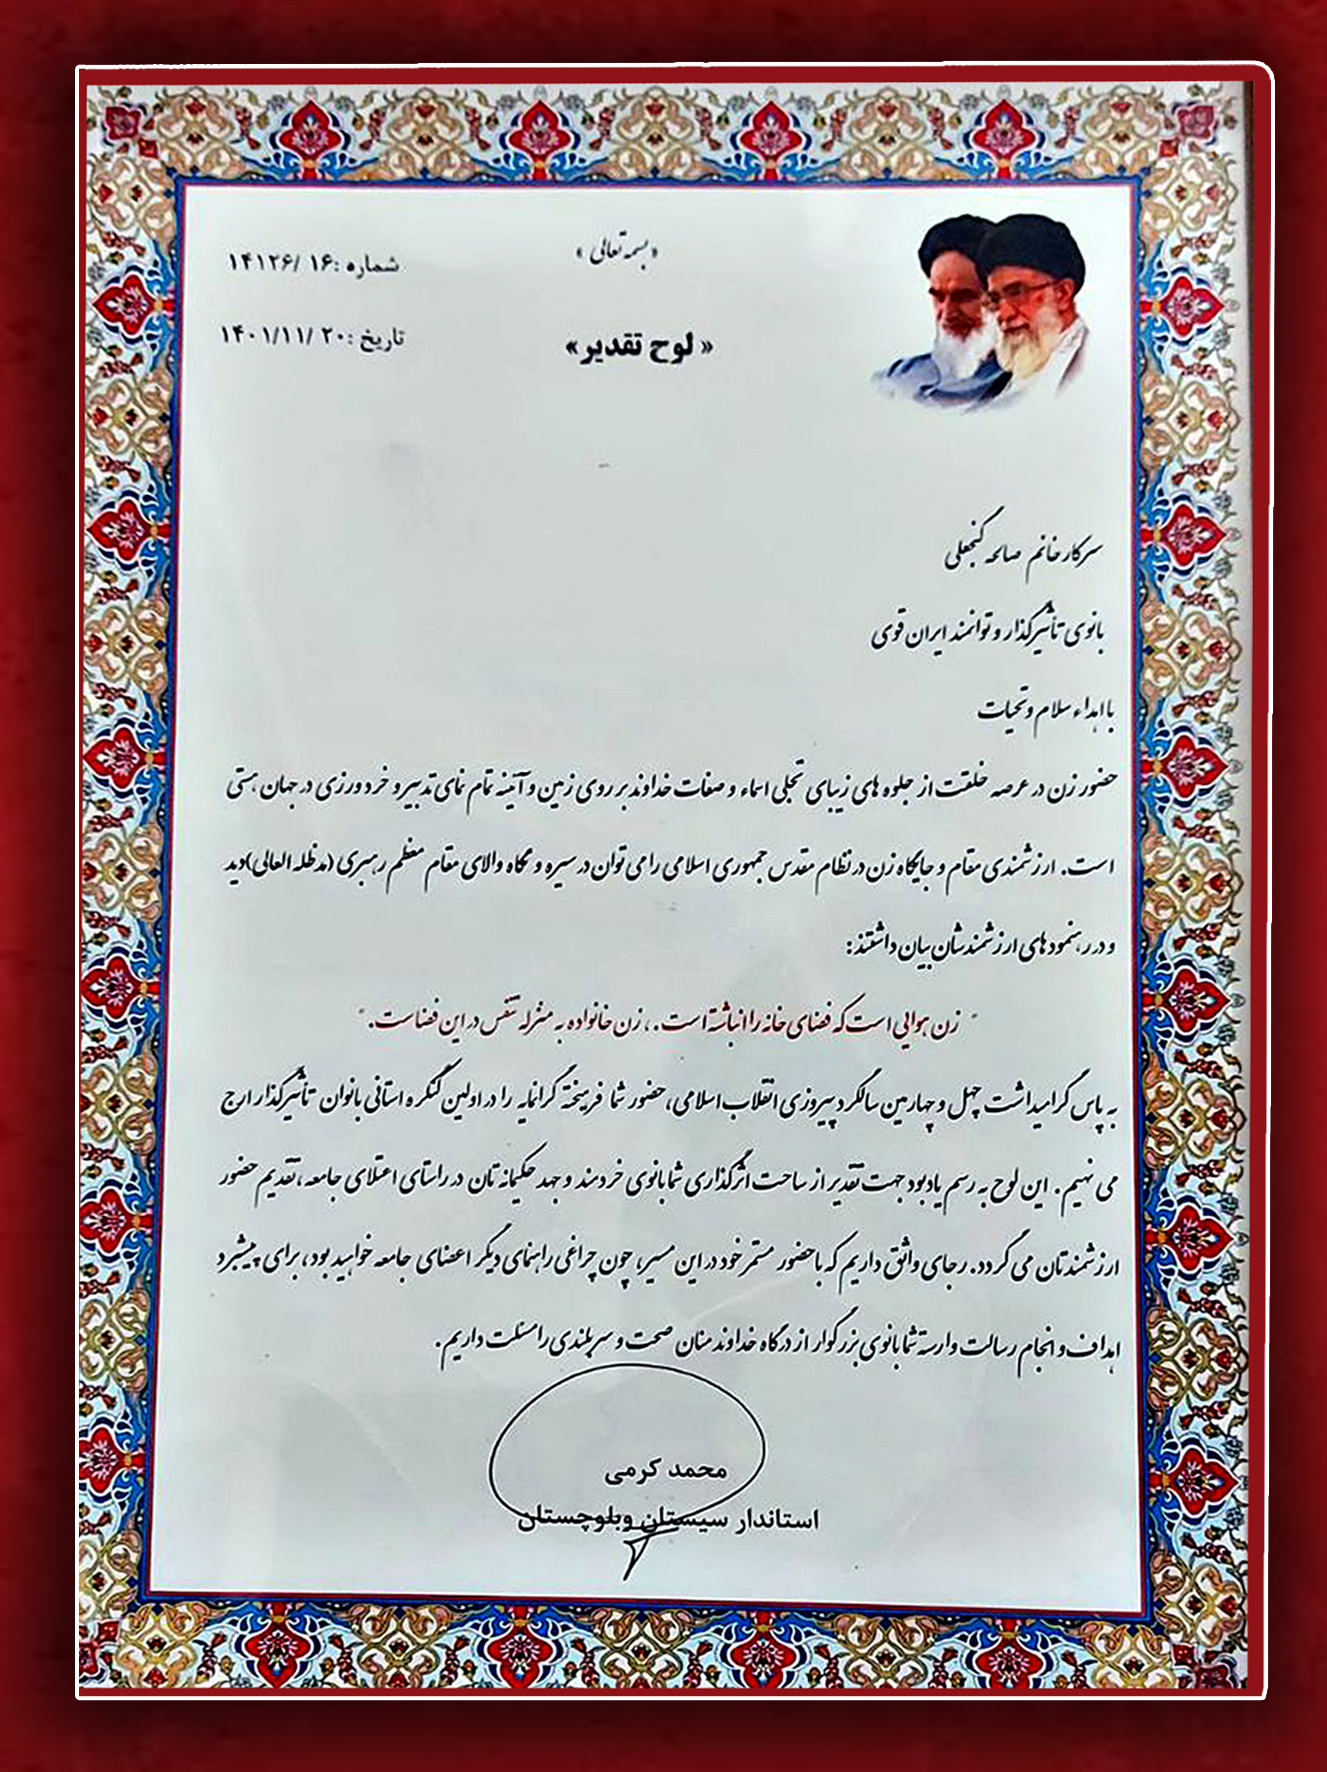 «بسمه تعالی»
شماره :۱۴۱۲۶/۱۶
«لوح تقدیر»
تاریخ :۱۴۰۱/۱۱/۲۰
سرکار خانم صالحه گنجعلی
بانوی تأثیرگذار و توانمند ایران قوی
با اهداء سلام و تحیات
حضور زن در عرصه خلقت از جلوه های زیبای تجلی اسماء و صفات خداوند بر روی زمین و آئینه تمام نمای تدبیر و خردورزی در جهان هستی
است. ارزشمندی مقام و جایگاه زن در نظام مقدس جمهوری اسلامی را می توان در سیره و نگاه والای مقام معظم رهبری (مدظله العالی) دید
و در رهنمودهای ارزشمندشان بیان داشتند:
" زن هوایی است که فضای خانه را انباشته است. ، زن خانواده به منزله تنفس در این فضاست. "
به پاس گرامیداشت چهل و چهارمین سالگرد پیروزی انقلاب اسلامی، حضور شما فرهیخته گرانمایه را در اولین کنگره استانی بانوان تأثیرگذار ارج
می نهیم. این لوح به رسم یادبود جهت تقدیر از ساحت اثرگذاری شما بانوی خردمند و جهد حکیمانه تان در راستای اعتلای جامعه ، تقدیم حضور
ارزشمندتان می گردد. رجای واثق داریم که با حضور مستمر خود در این مسیر، چون چراغی راهنمای دیگر اعضای جامعه خواهید بود، برای پیشبرد
اهداف و انجام رسالت وارسته شما بانوی بزرگوار از درگاه خداوند منان صحت و سربلندی را مسئلت داریم.
محمد کرمی
استاندار سیستان وبلوچستان